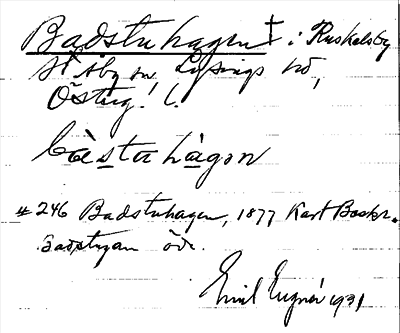 Badstuhagen † i Ruskelsby
St Åby sn, Lysings hd,
Östug. l.
bàstuhàgan
# 246 Badstuhagen, 1877 Kart Beskr.
Badstugan öde.
Emil 1931